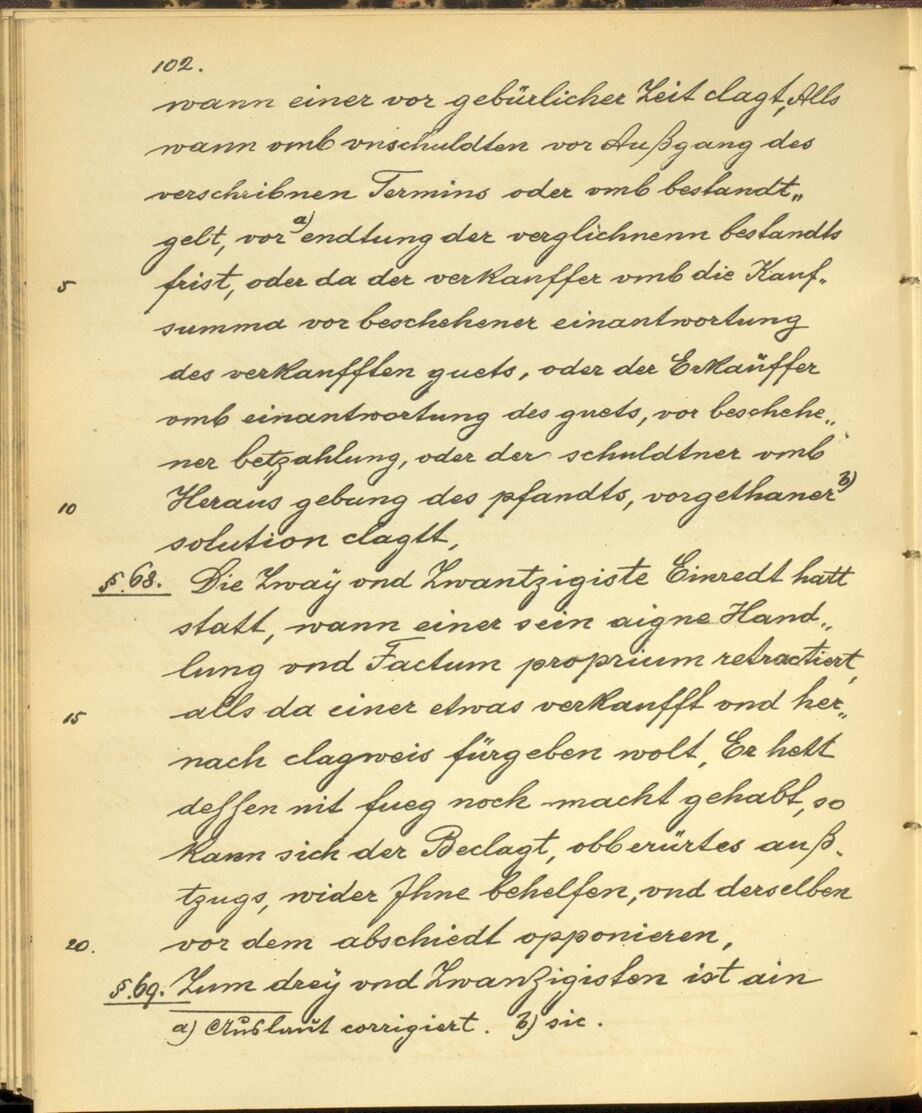 102.
wann einer vor gebürlicher Zeit clagt, Alls
wann vmb vnschuldten vor Außgang des
verschribnen Termins oder vmb bestandt„
gelt, vor a) endtung der verglichnenn bestandts
5 frist, oder da der verkauffer vmb die Kauf„
summa vor beschehener einantwortung
des verkaufften guets, oder der Erkaüffer
vmb einantwortung des guets, vor beschehe„
ner betzahlung, oder der schuldtner vmb
10 Heraus gebung des pfandts, vorgethaner b)
solution clagtt,
§.68. Die Zwaÿ vnd Zwantzigiste Einredt hatt
statt, wann einer sein aigne Hand„
lung vnd Factum proprium retractiert,
15 alls da einer etwas verkaufft vnd her„
nach clagweis fürgeben wolt, Er hett
dessen nit fueg noch macht gehabt, so
kann sich der Beclagt, obberürtes auß„
tzugs, wider Ihne behelfen, vnd derselben
20. vor dem abschiedt opponieren,
§.69. Zum dreÿ vnd Zwanzigisten ist ain
a) Auslaut corrigiert. b) sic.